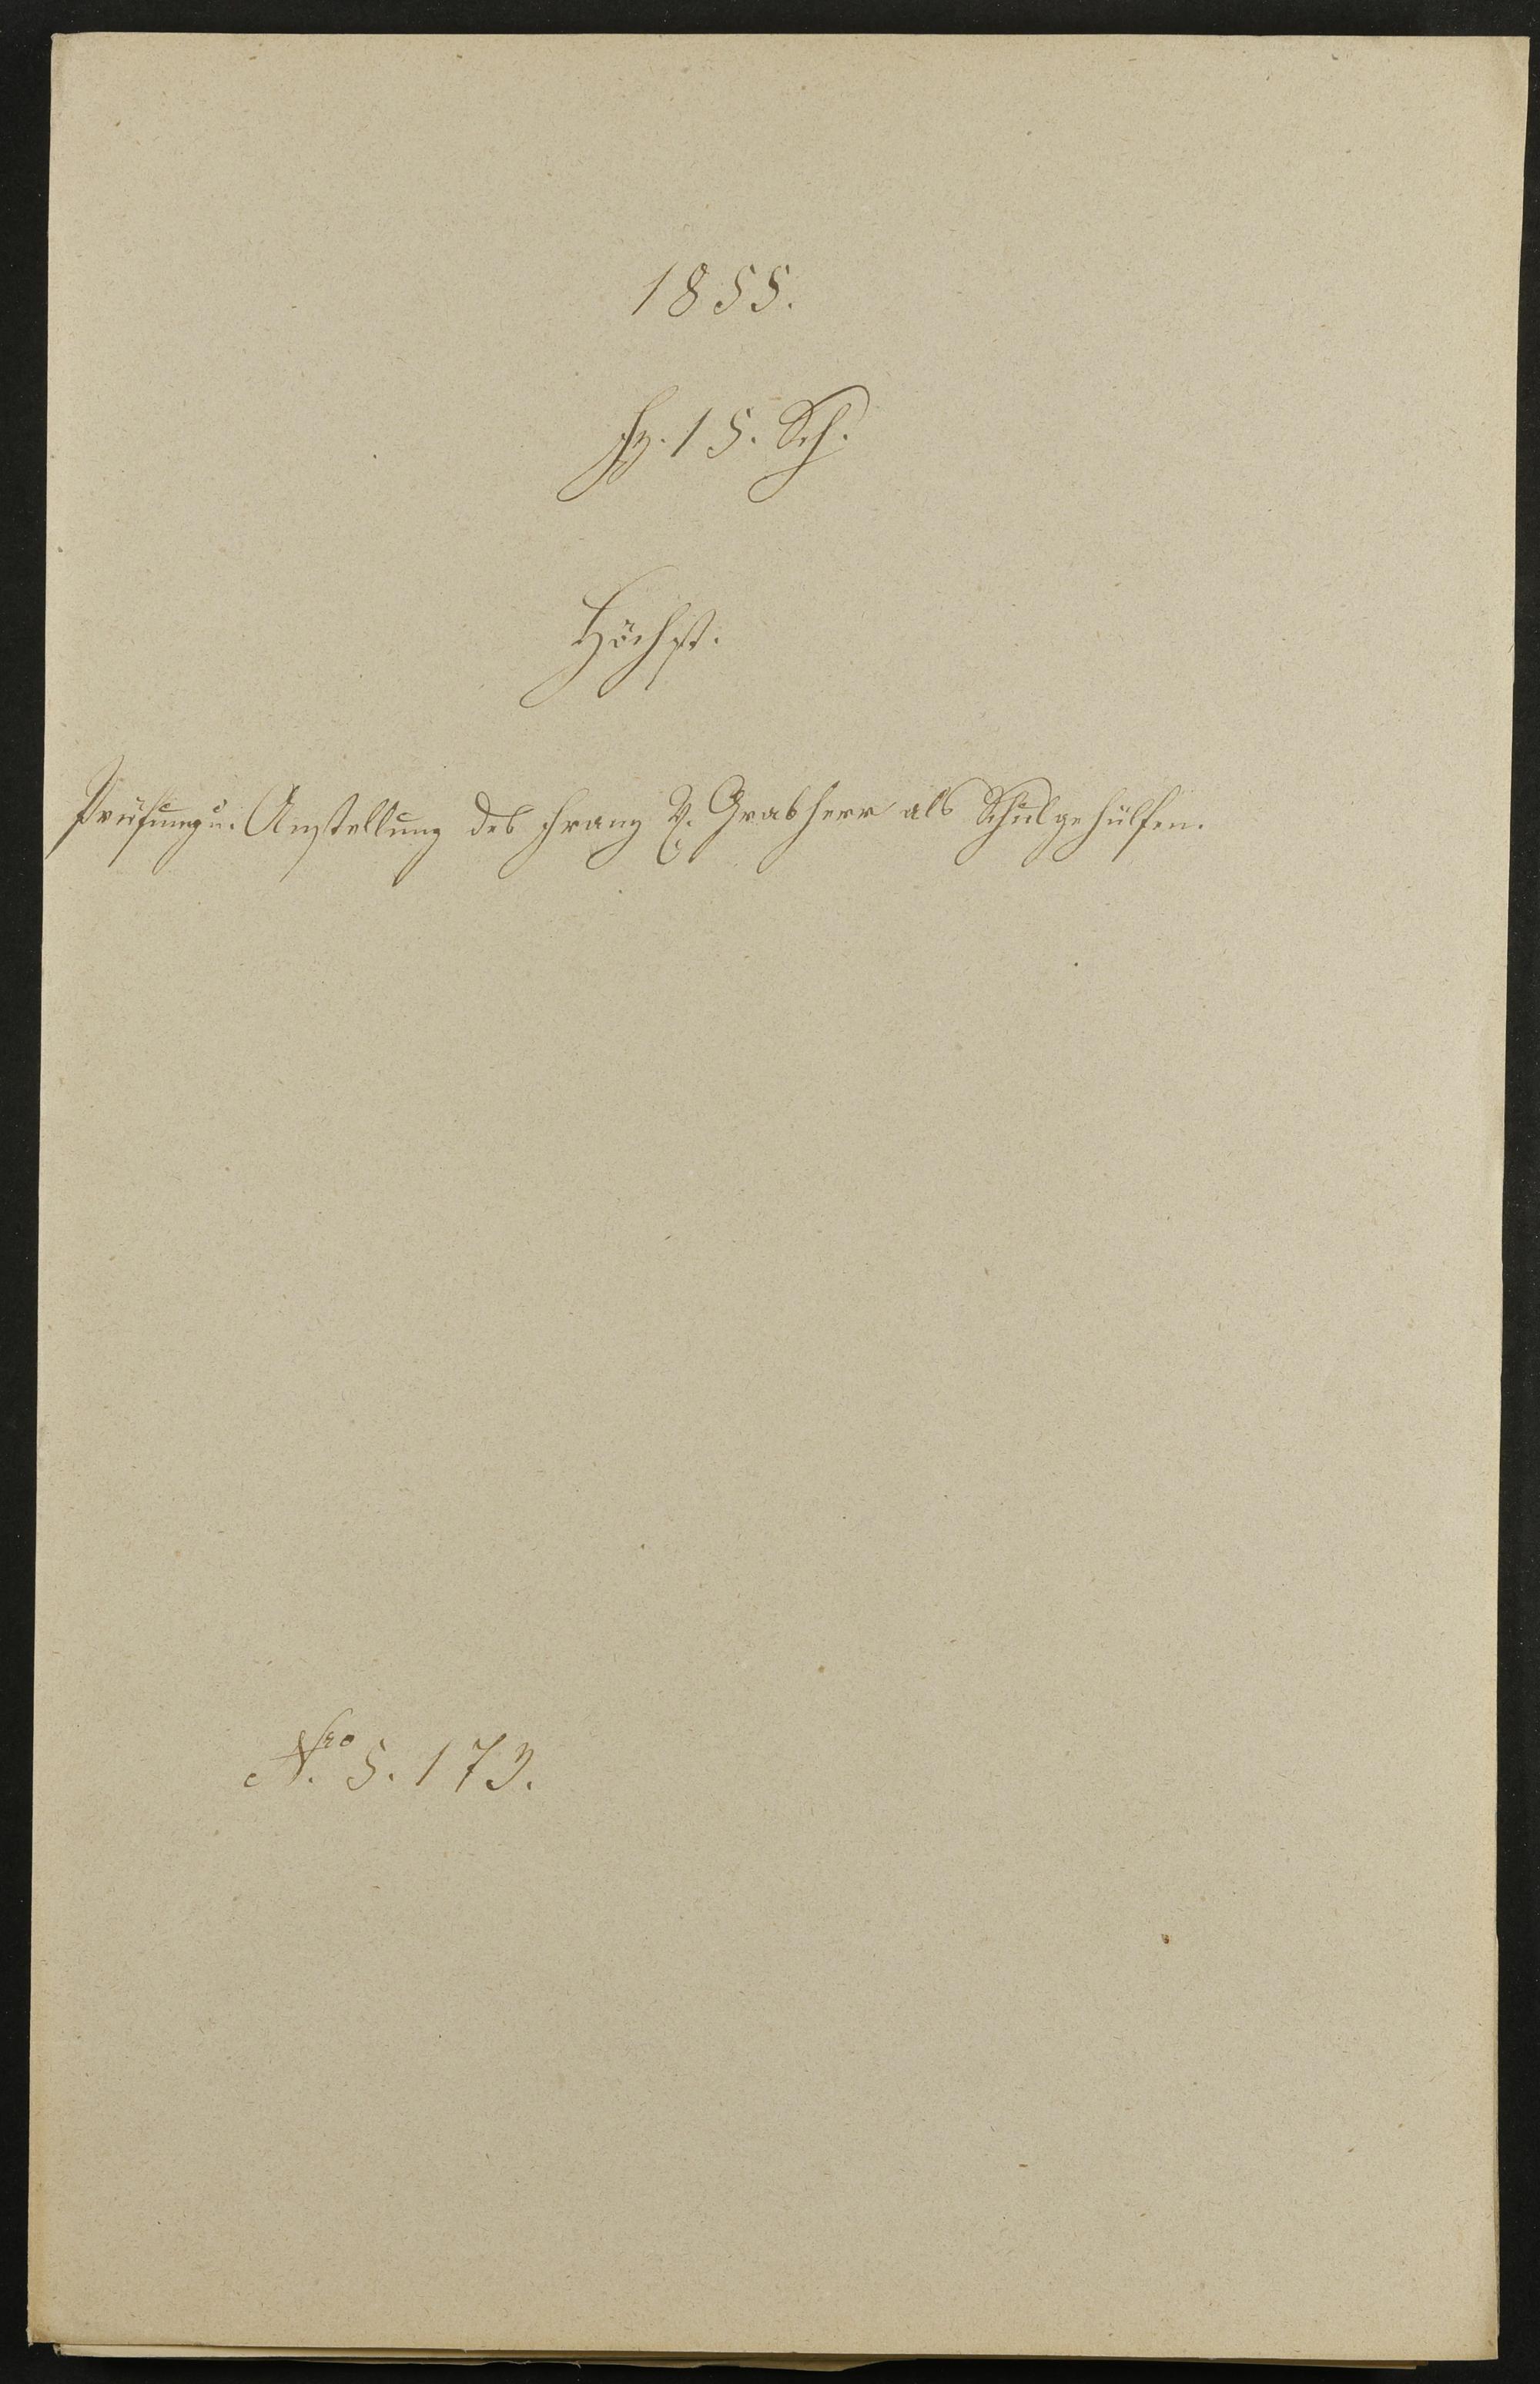 1855.
Fz. 15. Sch.
Höchst.
Prüfung u. Anstellung des Franz X. Grabherr als Schulgehülfen.
Nro. 5.173.